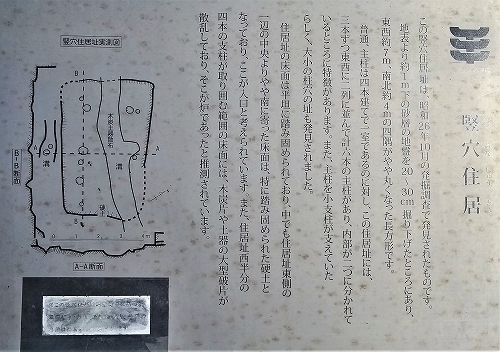 竪穴住居
この竪穴住居址は、昭和26年10月の発掘調査で発見されたものです。
地表より約1m下の砂礫の地盤を20〜30cm掘り下げたところにあり、
東西約7m、南北約4mの四隅がやや丸くなった長方形です。
普通、主柱は四本建てで一室であるのに対し、この住居址には、
三本ずつ東西に二列に並んで計六本の主柱があり、内部が二つに分かれて
いるところに特徴があります。また、主柱を小支柱が支えていた
らしく、大小の柱穴の址も発見されました。
住居址の床面は平坦に踏み固められており、中でも住居址東側の
一辺の中央よりやや南に寄った床面は、特に踏み固められた硬土と
なっており、ここが入口と考えられています。また、住居址西半分の
四本の支柱が取り囲む範囲の床面には、木炭片や土器の大型破片が
散乱しており、そこが炉であったと推測されています。
竪穴住居址実測図
B
A
A
B
溝
溝
硬土
B-B断面
0 1 2 3 4m
A-A断面